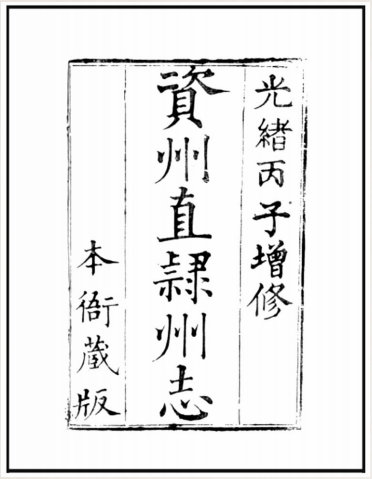 光緒丙子增修
資州直隷州志
本衙蔵版